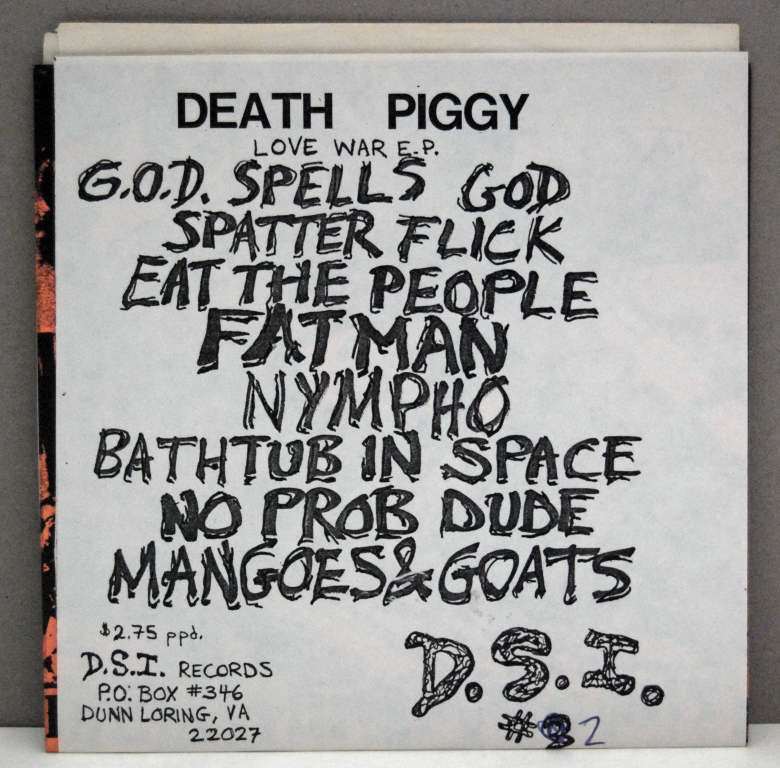 DEATH PIGGY
LOVE WAR E.P.
G.O.D. SPELLS GOD
SPATTER FLICK
EAT THE PEOPLE
FAT MAN
NYMPHO
BATHTUB IN SPACE
NO PROB DUDE
MANGOES & GOATS
$2.75 ppd.
D.S.I. RECORDS
P.O. BOX #346
DUNN LORING, VA
22027
D.S.I.
#2